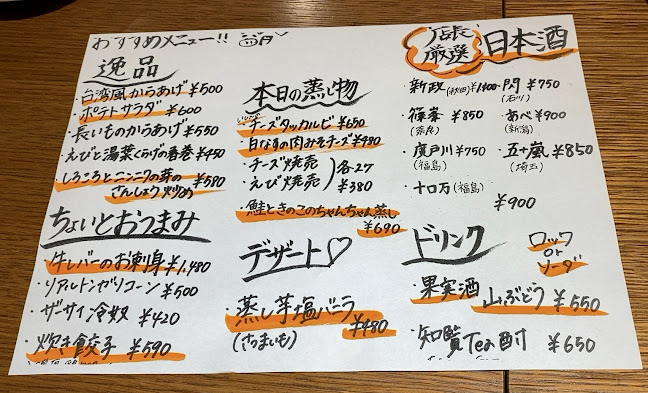 おすすめメニュー!!
逸品
・台湾風からあげ ¥500
・ポテトサラダ ¥600
・長いものからあげ ¥550
・えびと湯葉くらげの春巻 ¥450
・しろころとニンニクの芽の
さんしょう炒め ¥580
ちょいとおつまみ
・牛レバーのお刺身 ¥1,480
・リアルトンガリコーン ¥500
・ザーサイ冷奴 ¥420
・炊き餃子 ¥590
本日の蒸し物
・チーズタッカルビ ¥650
・白なすの肉みそチーズ ¥480
・チーズ焼売
・えび焼売
各2ケ
¥380
・鮭ときのこのちゃんちゃん蒸し
¥690
デザート♡
・蒸し芋塩バニラ
(さつまいも) ¥480
店長
厳選
日本酒
・新政(秋田) ¥1400
・閃 ¥750
(石川)
・篠峯 ¥850
(奈良)
・あべ ¥900
(新潟)
・廣戸川 ¥750
(福島)
・五十嵐 ¥850
(埼玉)
・十口万(福島)
¥900
ドリンク
ロック
or
ソーダ
・果実酒 山ぶどう ¥550
・知覧Tea酎 ¥650